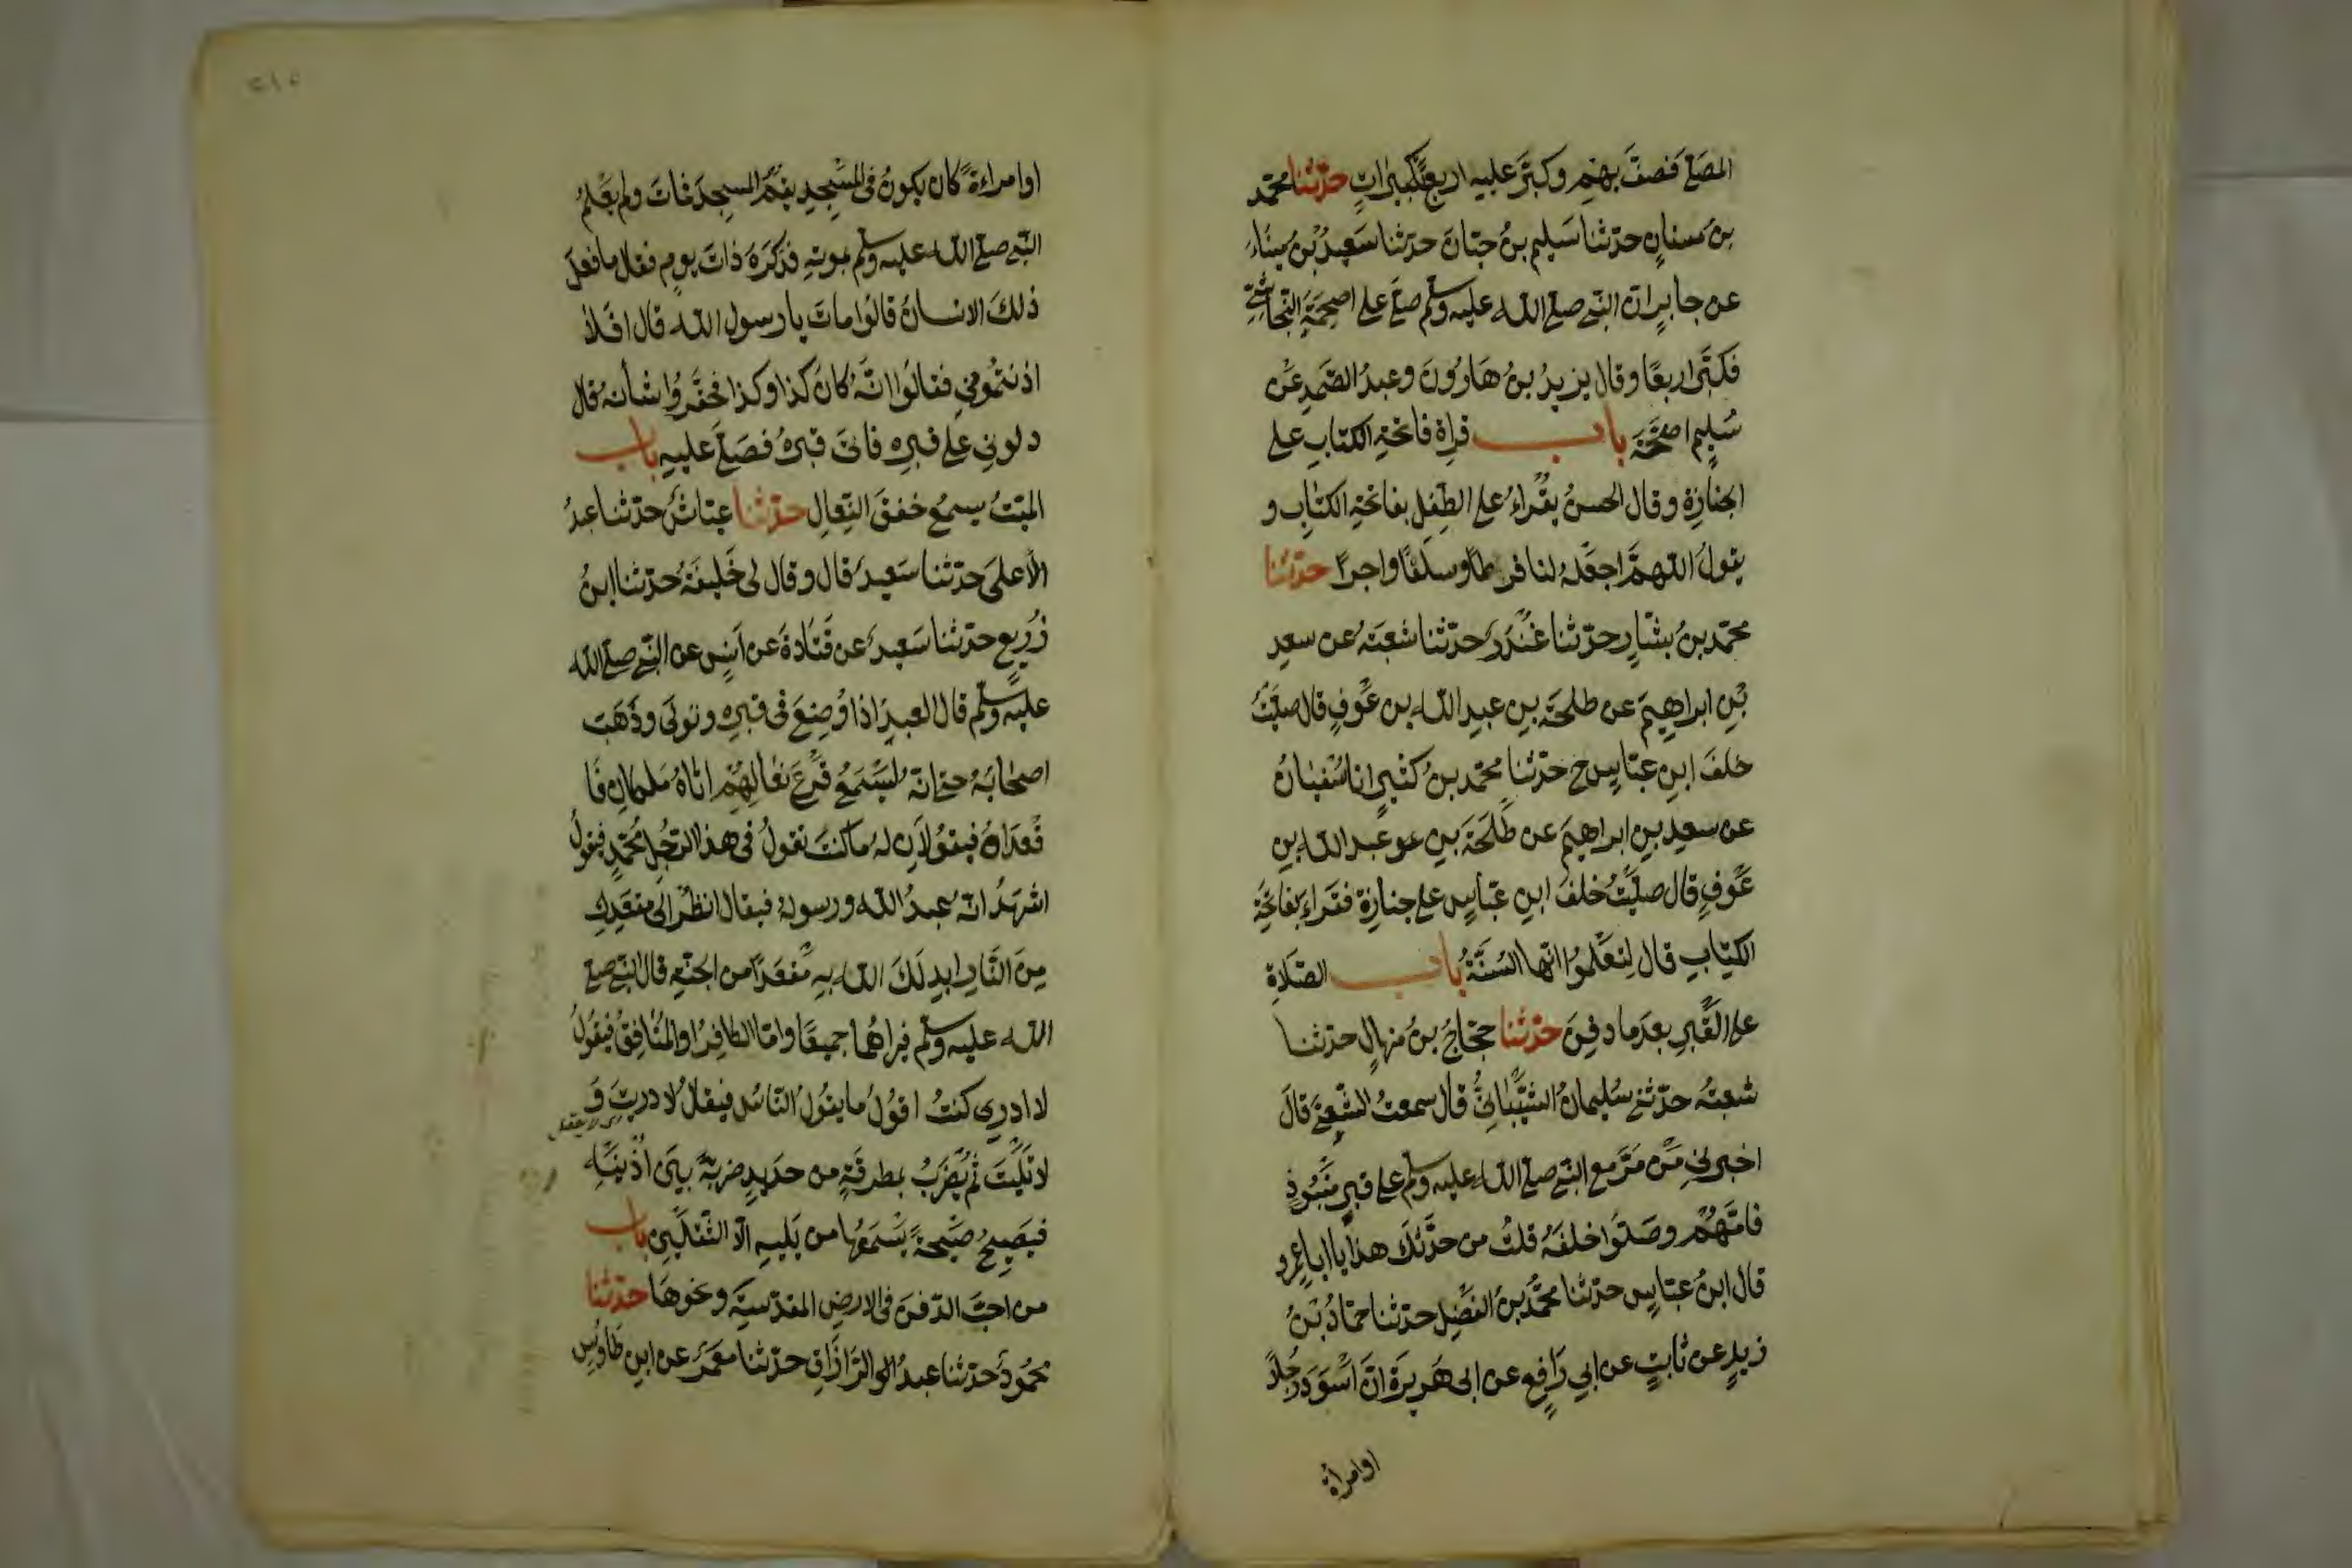 المصلى فصفّ بهم وكبّر عليه اربع تكبيرات حدّثنا محمّد
بن سنانٍ حدّثنا سَليم بنُ حيّانَ حدثنا سَعيدُ بْنُ ميناء
عن جابرٍ انّ النّبي صلى الله عليه وسلم صلّى على اصحمَةَ النّجاشيّ
فكبّر اربعًا وقال يزيدُ بنُ هَارُونَ وعبدُ الصّمدِ عن
سُليمٍ اصحَمَة باب قراة فاتحة الكتاب على
الجنازة وقال الحسنُ يقْراءُ على الطّفلِ بفاتحة الكتابِ و
يقولُ اللهمّ اجعَلهُ لنا فرطًا وسلفًا واجرًا حدّثنا
محمّد بنُ بشّارٍ حدّثنا غُنْدَرٌ حدّثنا شعبَةُ عن سعدِ
بْنِ ابراهيمَ عن طلحَة بن عبدِ الله بن عَوفٍ قال صليتُ
خلفَ ابنِ عبّاسٍ ح حدّثنا محمّد بنُ كثيرٍ انا سُفيانُ
عن سعدِ بنِ ابراهيمَ عن طَلحَةَ بنِ عو عبد الله بنِ
عَوفٍ قال صلّيتُ خلفَ ابنِ عبّاسٍ على جنازة فقراء بفاتحة
الكتابِ قال لِتعْلموُا انّها السُنَّةُ باب الصّلاة
على القَبرِ بعدَ ما دفِنَ حدّثنا حجّاجُ بنُ منهالٍ حدثنا
شعبةُ حدّثني سُليمانُ الشيْبانيُّ قال سمعتُ الشّعبيّ قالَ
اخبرني مَنْ مَرَّ مع النبّي صلى الله عليه وسلم على قبرٍ منْبوذٍ
فامّهُمْ وصَلّوا خلفَهُ قلتُ من حدَّثكَ هذا يا ابا عمرو
قال ابنُ عبّاسٍ حدّثنا محمّدُ بنُ الفضلِ حدّثنا حمّادُ بنُ
زيدٍ عن ثابتٍ عن ابي رَافعٍ عن ابى هَريرَة انّ اسْوَدَ رجُلًا
اوامرأة
٢١٥
اوامراءةً كان يكونُ فى المسْجِدِ يقُمّ المسجدَ فماتَ ولم يَعْلمُ
النّبي صلى الله عليه وسلم بموتهِ فذكرَهُ ذاتَ يومٍ فقال ما فعلَ
ذلكَ الانسانُ قالوُا ماتَ يا رسول الله قال افَلا
اذنتمُوني فقالوُا انّهُ كانَ كذا وكذا فحقّروُا شأنهُ قال
دلوني على قبرِه فاتى قبرَهُ فصَلّى عليهِ باب
الميّتُ يسمعُ خفقَ النّعالِ حدّثنا عيّاشٌ حدّثنا عبدُ
الاعلى حدّثنا سَعيدٌ قال وقال لى خَليفَةُ حدّثنا ابنُ
زُرَيعٍ حدّثنا سَعيدٌ عن قتادةَ عن اَنسٍ عن النبّي صلى الله
عليه وسلم قال العبدُ اذا وُضِعَ فى قبرِه وتولى وذَهَبَ
اصحابَهُ حتى انّهُ ليَسْمَعُ قَرْعَ نعَالِهِمْ اتاهُ مَلكانِ فا
قعَداهُ فيقولانِ لهُ ما كنتَ تقولُ فى هذا الرّجُلِ محمّدٍ فيقولُ
اشهَدُ انّهُ عبدُ الله ورسولهُ فيقال انظُر الى مقعَدِكَ
مِنَ النّارِ ابدلكَ الله بِهِ مقْعَدًا من الجنّةِ قال النبّي صلى
الله عليه وسلم فيراهُما جميعًا وامّا الكافِرُ اوالمنُافِقُ فيقولُ
لا ادرى كنتُ اقوُلُ ما يقوُلُ النّاسُ فيقالُ لا دريتَ وَ
لا تَليْتَ ثم يُضرَبُ بمطرقةٍ من حديدٍ ضربةً بينَ اُذُنيْهِ
فيَصيحُ صيْحةً يَسْمَعُها من يَليهِ الّا الثقَلَينِ باب
من احبّ الدّفنَ فى الارضِ المقدّسيّة ونحوهَا حدّثنا
محمُودٌ حدّثنا عبدُ الرّازّاق حدّثنا معمَرٌ عن ابنِ طاوُسٍ